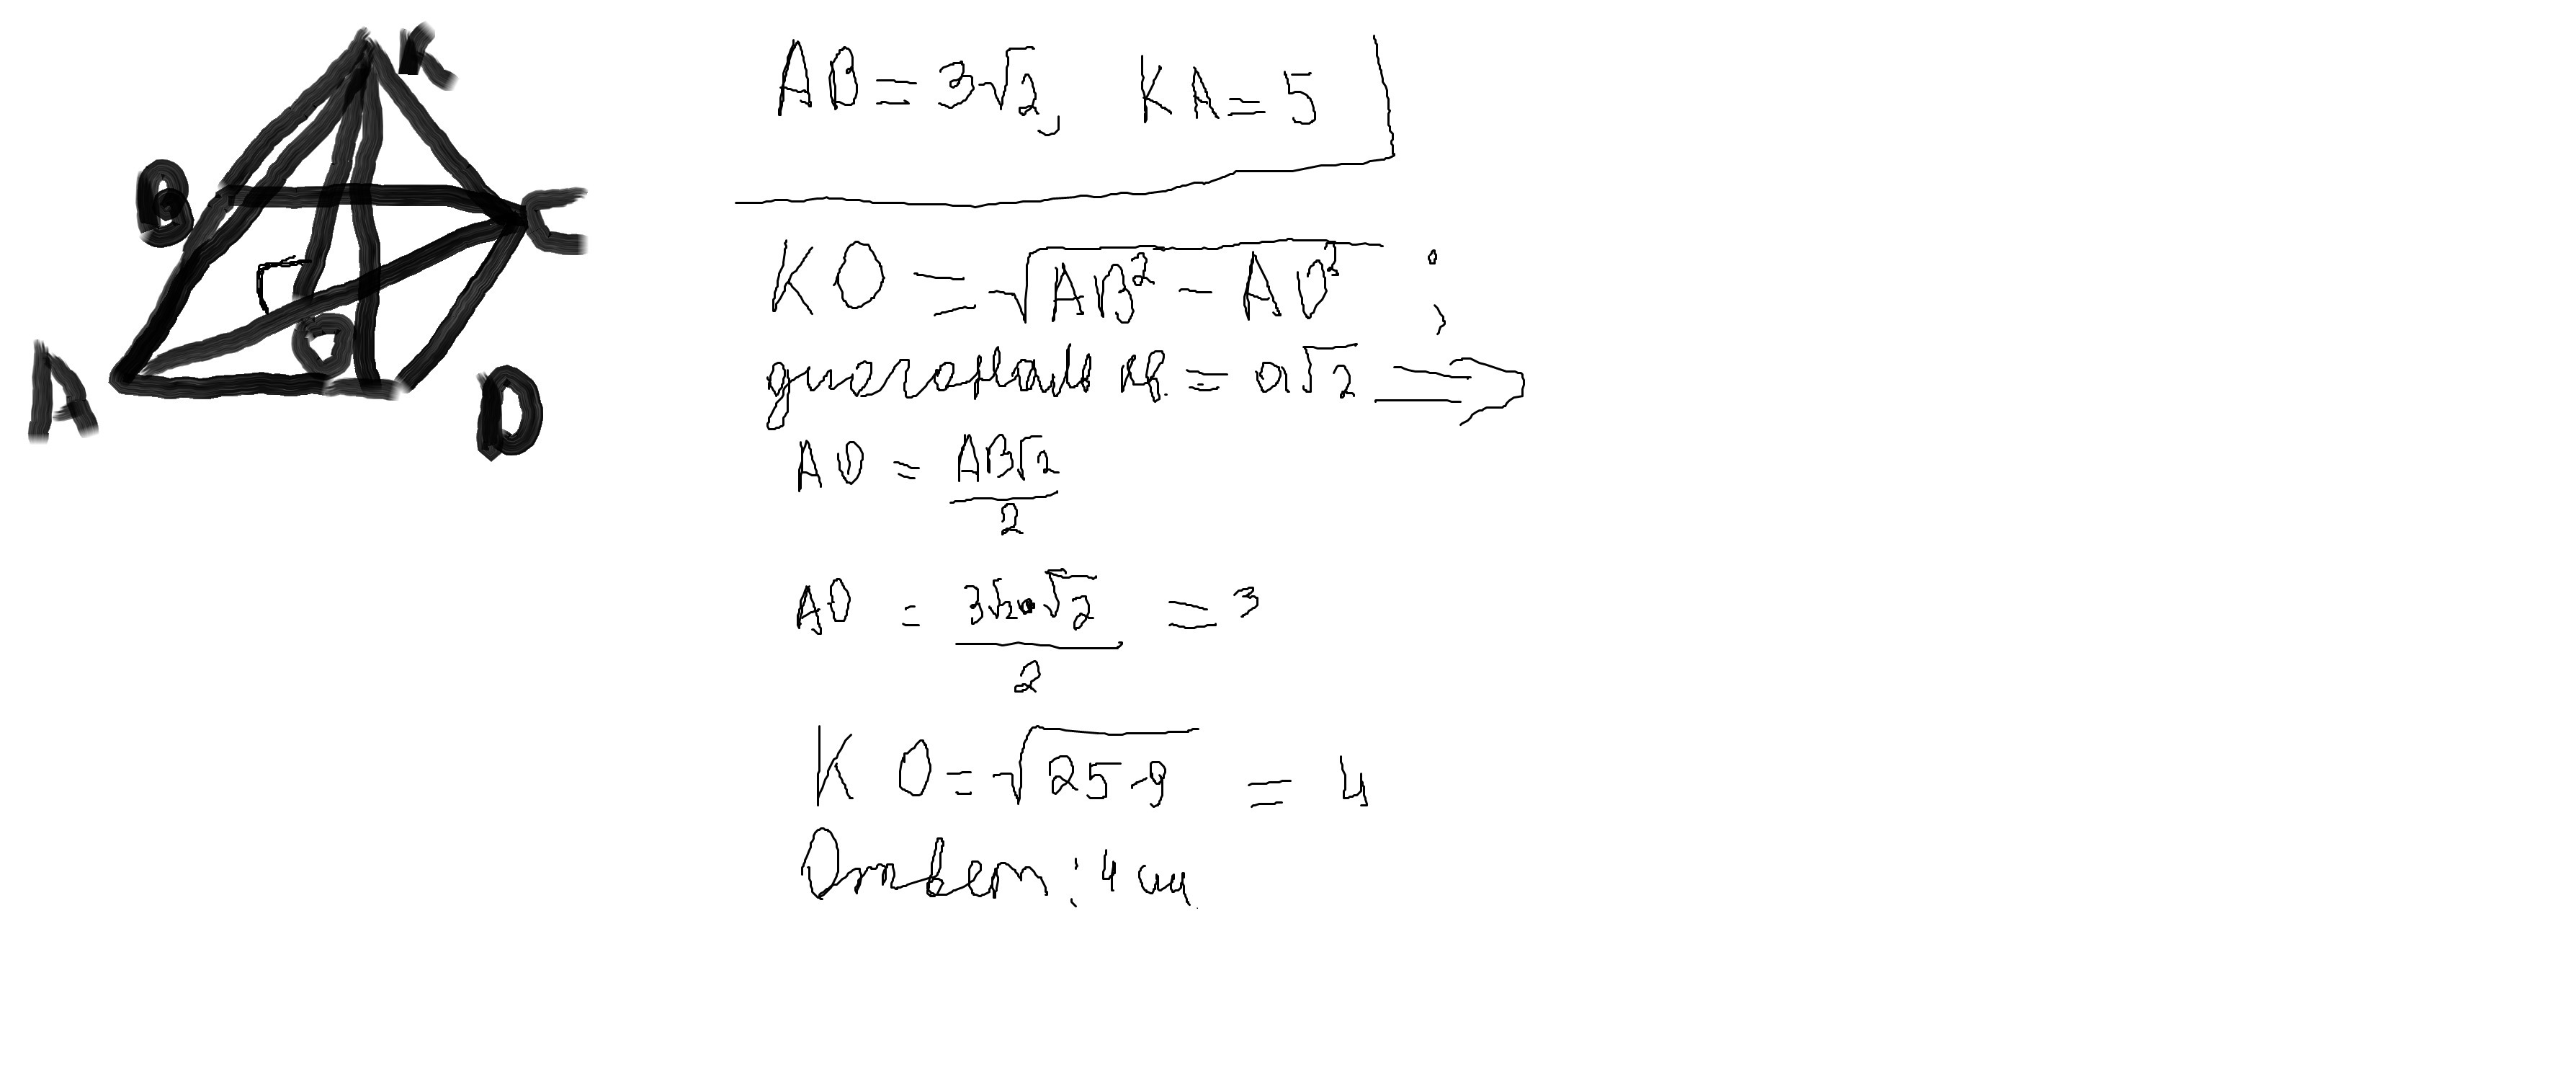 K
B
C
A
O
D
AB = 3√2, KA = 5
KO = √(AB² - AO²) ;
диагональ кв. = a√2 ⇒
AO = AB√2 / 2
AO = 3√2·√2 / 2 = 3
KO = √(25-9) = 4
Ответ: 4 см.